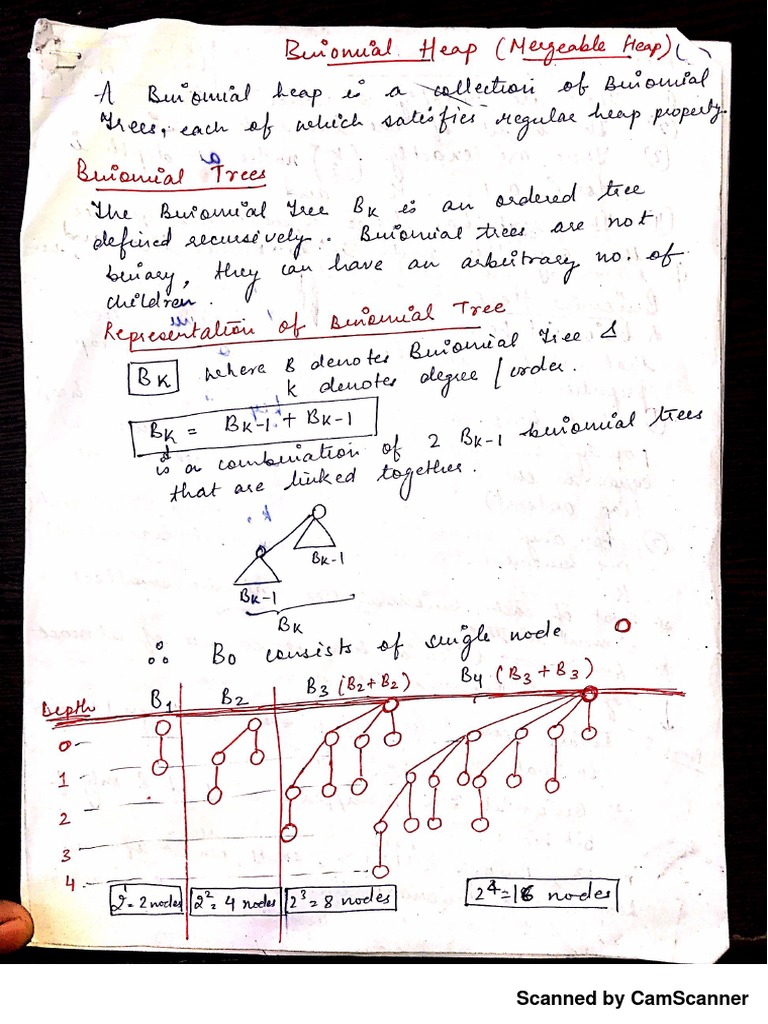 Binomial Heap (Mergeable Heap)
A Binomial heap is a collection of Binomial
Trees, each of which satisfies regular heap property.
Binomial Trees
The Binomial Tree BK is an ordered tree
defined recursively. Binomial trees are not
binary, they can have an arbitrary no. of
children.
Representation of Binomial Tree
BK where B denotes Binomial Tree &
k denotes degree / order.
BK = BK-1 + BK-1
is a combination of 2 BK-1 binomial trees
that are linked together.
BK-1
BK-1
BK
∴ B0 consists of single node
Depth B1 B2 B3 (B2+B2) B4 (B3+B3)
0
1
2
3
4
2^1 = 2 nodes 2^2 = 4 nodes 2^3 = 8 nodes 2^4 = 16 nodes
Scanned by CamScanner